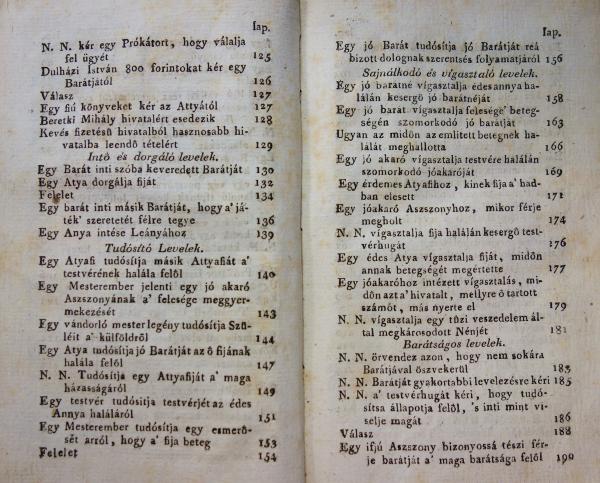 lap.
N. N. kér egy Prókátort, hogy válalja
fel ügyét 125
Dulházi István 800 forintokat kér egy
Barátjától 126
Válasz 127
Egy fiú könyveket kér az Attyától 127
Beretki Mihály hivatalért esedezik 128
Kevés fizetésű hivatalból hasznosabb hi-
vatalba leendő tételért 129
Intő és dorgáló levelek.
Egy Barát inti szóba keveredett Barátját 130
Egy Atya dorgálja fiját 132
Felelet 134
Egy barát inti másik Barátját, hogy a' já-
ték' szeretetét félre tegye 136
Egy Anya intése Leányához 139
Tudósító Levelek.
Egy Atyafi tudósítja másik Attyafiát a'
testvérének halála felől 140
Egy Mesterember jelenti egy jó akaró
Aszszonyának a' felesége meggyer-
mekezését 143
Egy vándorló mester legény tudósítja Szü-
léit a' külföldről 144
Egy Atya tudósítja jó Barátját az ő fijának
halála felől 147
N. N. Tudósítja egy Attyafiját a' maga
házasságáról 149
Egy testvér tudósítja testvérjét az édes
Annya haláláról 151
Egy Mesterember tudósítja egy esmerő-
sét arról, hogy a' fija beteg 153
Felelet 154
lap.
Egy jó Barát tudósítja jó Barátját reá
bízott dolognak szerentsés folyamatjáról 156
Sajnálkodó és vígasztaló levelek.
Egy jó barátné vígasztalja édes annya ha-
lálán kesergő jó barátnéját 158
Egy jó barát vígasztalja felesége' beteg-
ségén szomorkodó jó barátját 163
Ugyan az midőn az említett betegnek ha-
lálát meghallotta 166
Egy jó akaró vígasztalja testvére halálán
szomorkodó jóakaróját 169
Egy érdemes Atyafihoz, kinek fija a' had-
ban elesett 171
Egy jóakaró Aszszonyhoz, mikor férje
megholt 174
N. N. vígasztalja fija halálán kesergő test-
vérhugát 176
Egy édes Atya vígasztalja fiját, midőn
annak betegségét megértette 177
Egy jóakaróhoz intézett vígasztalás, mi-
dőn azt a' hivatalt, mellyre ő tartott
számot, más nyerte el 179
N. N. vígasztalja egy tűzi veszedelem ál-
tal megkárosodott Nénjét 181
Barátságos levelek.
N. N. örvendez azon, hogy nem sokára
Barátjával öszvekerűl 183
N. N. Barátját gyakortabbi levelezésre kéri 185
N. N. a' testvérhugát kéri, hogy tudó-
sítsa állapotja felől, 's inti mint vi-
selje magát 186
Válasz 188
Egy ifjú Aszszony bizonyossá tészi fér-
je barátját a' maga barátsága felől 190